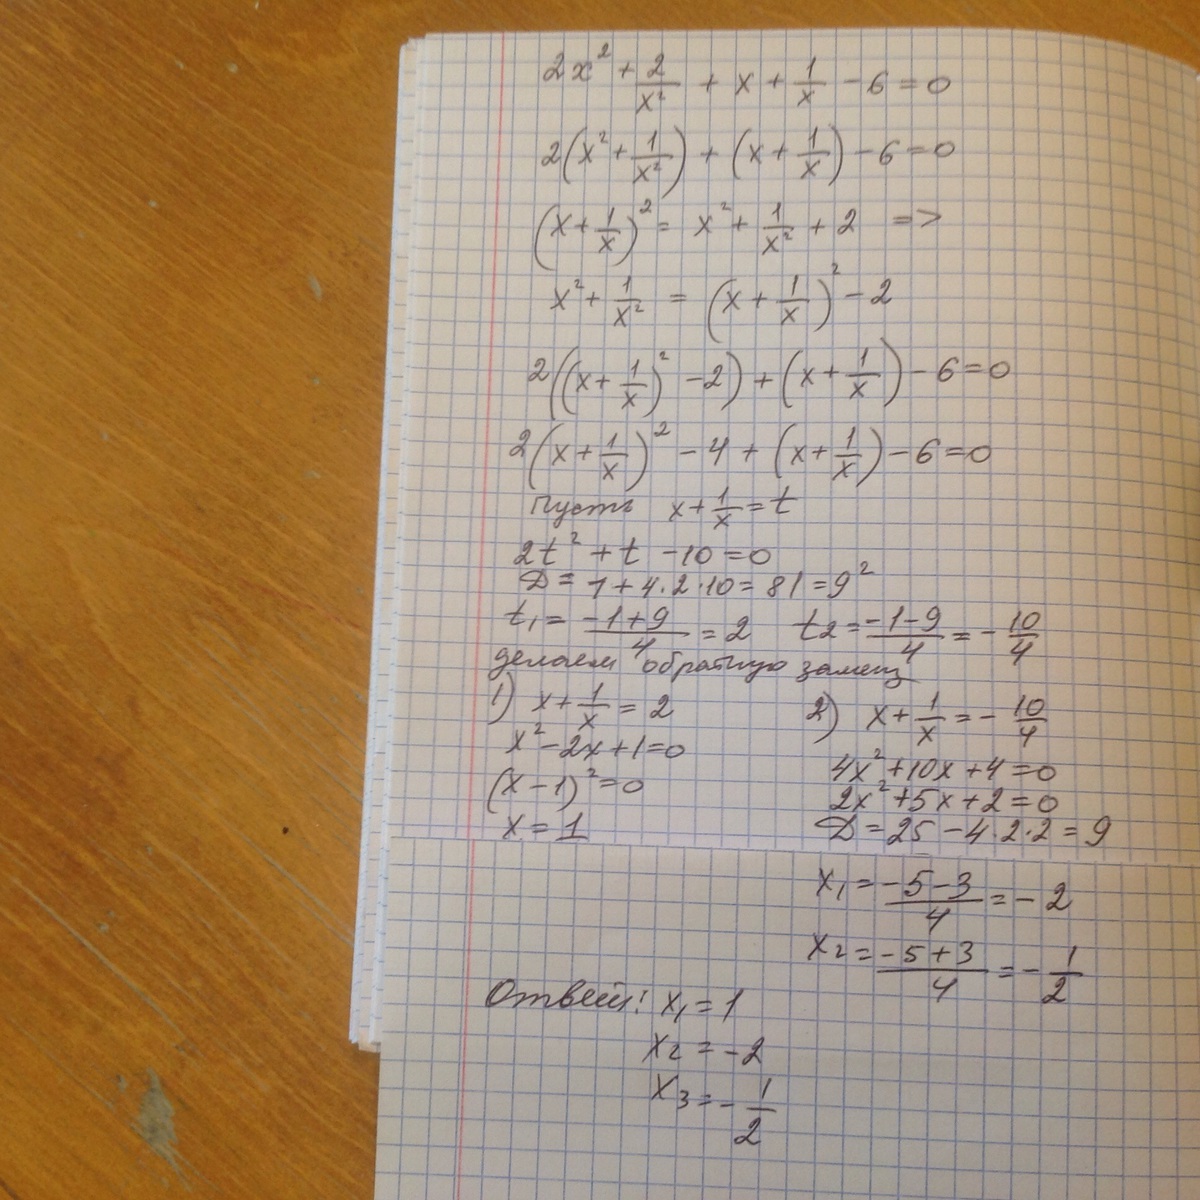 2x² + 2/x² + x + 1/x - 6 = 0
2(x² + 1/x²) + (x + 1/x) - 6 = 0
(x + 1/x)² = x² + 1/x² + 2 =>
x² + 1/x² = (x + 1/x)² - 2
2((x + 1/x)² - 2) + (x + 1/x) - 6 = 0
2(x + 1/x)² - 4 + (x + 1/x) - 6 = 0
Пусть x + 1/x = t
2t² + t - 10 = 0
D = 1 + 4·2·10 = 81 = 9²
t₁ = (-1+9)/4 = 2 t₂ = (-1-9)/4 = -10/4
делаем обратную замену
1) x + 1/x = 2 2) x + 1/x = -10/4
x² - 2x + 1 = 0 4x² + 10x + 4 = 0
(x - 1)² = 0 2x² + 5x + 2 = 0
x = 1 D = 25 - 4·2·2 = 9
x₁ = (-5-3)/4 = -2
x₂ = (-5+3)/4 = -1/2
Ответ: x₁ = 1
x₂ = -2
x₃ = -1/2